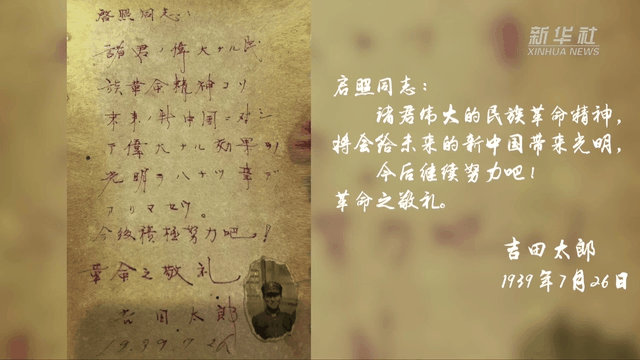 啓照同志:
諸君ノ偉大ナル民
族革命精神ヨリ
未来ノ新中国ニ対シ
テ偉大ナル効果
光明ヲハナツ事デ
アリマセウ。
今後積極努力吧!
革命之敬礼
吉田太郎
1939.7.26
新华社
XINHUA NEWS
启照同志:
诸君伟大的民族革命精神,
将会给未来的新中国带来光明,
今后继续努力吧!
革命之敬礼。
吉田太郎
1939年7月26日